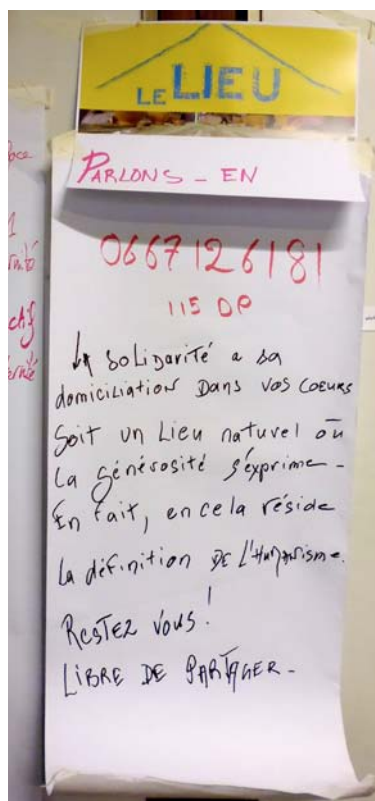 LE LIEU
PARLONS - EN
0667126181
115 DP
La solidarité a sa
domiciliation Dans vos coeurs
Soit un Lieu naturel où
la générosité s'exprime -
En fait, en cela réside
la définition DE L'Humanisme.
RESTEZ VOUS !
LIBRE DE PARTAGER -